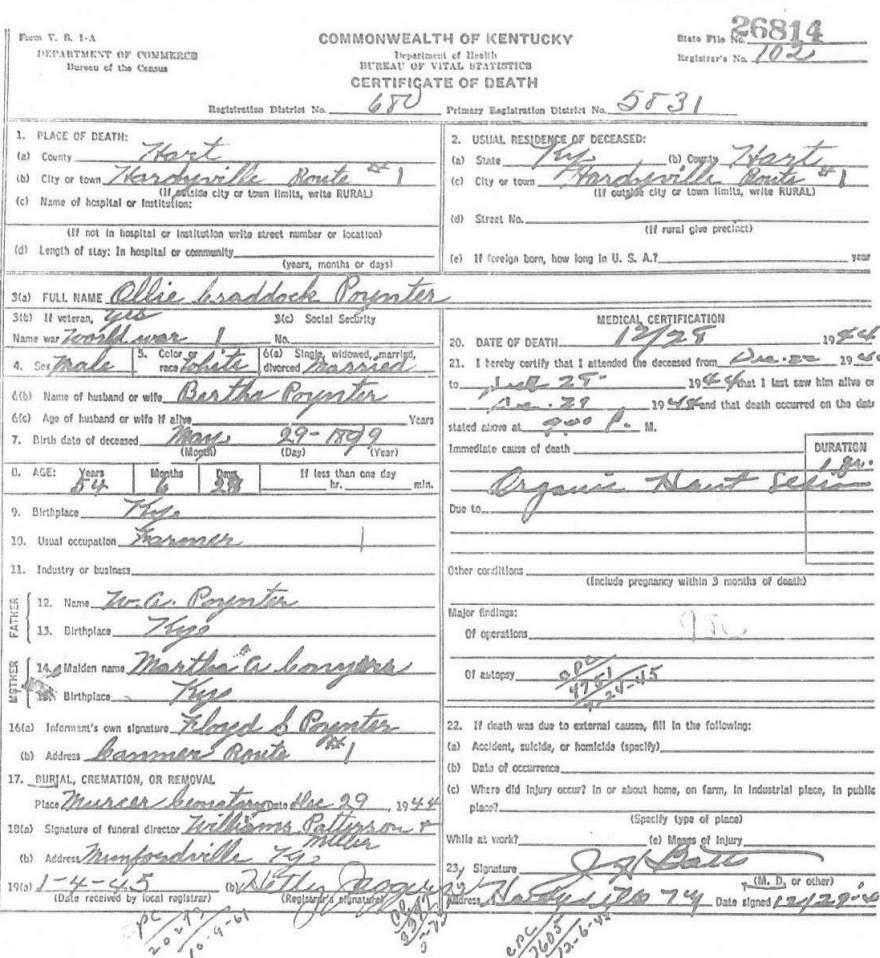 Form V. S. 1-A
DEPARTMENT OF COMMERCE
Bureau of the Census
COMMONWEALTH OF KENTUCKY
Department of Health
BUREAU OF VITAL STATISTICS
CERTIFICATE OF DEATH
State File No. 26814
Registrar's No. 102
Registration District No. 680 Primary Registration District No. 5831
1. PLACE OF DEATH:
(a) County Hart
(b) City or town Hardyville Route #1
(If outside city or town limits, write RURAL)
(c) Name of hospital or institution:
(If not in hospital or institution write street number or location)
(d) Length of stay: In hospital or community
(years, months or days)
2. USUAL RESIDENCE OF DECEASED:
(a) State Ky (b) County Hart
(c) City or town Hardyville Route #1
(If outside city or town limits, write RURAL)
(d) Street No.
(If rural give precinct)
(e) If foreign born, how long in U. S. A.? year
3(a) FULL NAME Ollie Craddock Poynter
3(b) If veteran, yes 3(c) Social Security
Name war World war 1 No.
4. Sex Male 5. Color or race White 6(a) Single, widowed, married, divorced Married
6(b) Name of husband or wife Bertha Poynter
6(c) Age of husband or wife if alive Years
7. Birth date of deceased May 29-1899
(Month) (Day) (Year)
8. AGE: Years Months Days If less than one day
54 6 hr. min.
9. Birthplace Ky.
10. Usual occupation Farmer
11. Industry or business
FATHER
12. Name W. A. Poynter
13. Birthplace Ky.
MOTHER
14. Maiden name Martha A Conyers
15. Birthplace Ky.
16(a) Informant's own signature Floyd S Poynter
(b) Address Canmer Route #1
17. BURIAL, CREMATION, OR REMOVAL
Place Murcer Cemetary Date Dec 29, 1944
18(a) Signature of funeral director Williams Patterson & Miller
(b) Address Munfordville Ky.
19(a) 1-4-45 (b)
(Date received by local registrar) (Registrar's signature)
MEDICAL CERTIFICATION
20. DATE OF DEATH 12/28 1944
21. I hereby certify that I attended the deceased from Dec. 22 19
to 19 44 that I last saw him alive on
Dec. 19 44 and that death occurred on the date
stated above at 9:00 P. M.
Immediate cause of death DURATION
Organic Heart 1 yr.
Due to
Other conditions
(Include pregnancy within 3 months of death)
Major findings:
Of operations
Of autopsy
CPC
4751
22. If death was due to external causes, fill in the following:
(a) Accident, suicide, or homicide (specify)
(b) Date of occurrence
(c) Where did injury occur? In or about home, on farm, in industrial place, in public
place?
(Specify type of place)
While at work? (e) Means of injury
23. Signature
(M. D. or other)
Address Hardyville Ky Date signed 12/29
CPC
20273
10-9-61
CPC
7605
12-6-45